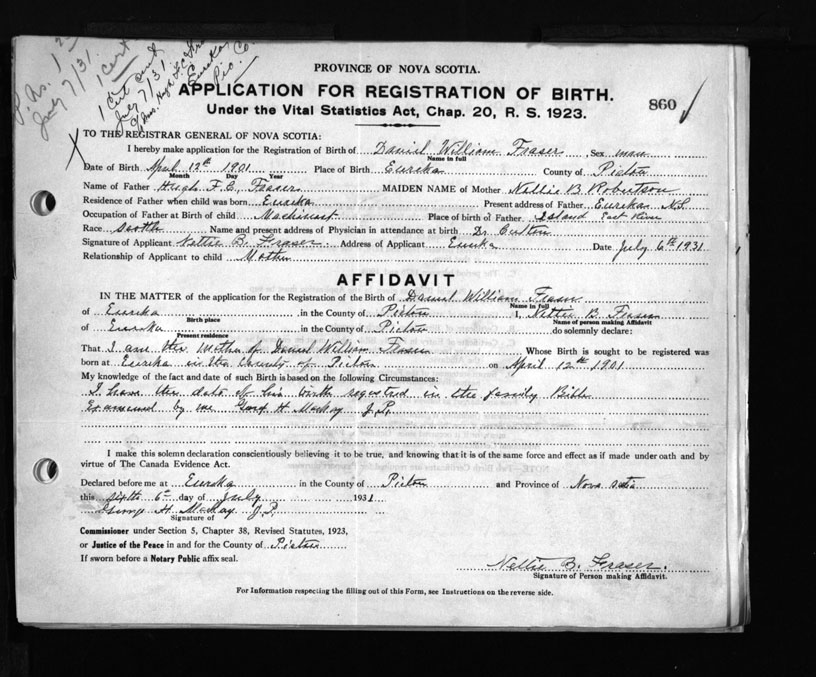 P.N. 1
July 7/31.
1 Cert
1 Cert sent
July 7/31
Mrs. Hugh F. C.
Eureka
Pic. Co.
PROVINCE OF NOVA SCOTIA.
APPLICATION FOR REGISTRATION OF BIRTH.
Under the Vital Statistics Act, Chap. 20, R. S. 1923.
860
TO THE REGISTRAR GENERAL OF NOVA SCOTIA:
I hereby make application for the Registration of Birth of Daniel William Fraser, Sex man
Name in full
Date of Birth April 12th 1901 Place of Birth Eureka County of Pictou
Month Day Year
Name of Father Hugh F. C. Fraser MAIDEN NAME of Mother Nellie B. Robertson
Residence of Father when child was born Eureka Present address of Father Eureka N.S.
Occupation of Father at Birth of child Machinist Place of birth of Father Island East River
Race Scotch Name and present address of Physician in attendance at birth Dr
Signature of Applicant Nettie B. Fraser Address of Applicant Eureka Date July 6th 1931
Relationship of Applicant to child Mother
AFFIDAVIT
IN THE MATTER of the application for the Registration of the Birth of Daniel William Fraser
Name in full
of Eureka in the County of Pictou I, Nettie B. Fraser
Birth place Name of person making Affidavit
of Eureka in the County of Pictou do solemnly declare:
Present residence
That I am the Mother of Daniel William Fraser Whose Birth is sought to be registered was
born at Eureka in the County of Pictou on April 12th 1901
My knowledge of the fact and date of such Birth is based on the following Circumstances:
I have the date of his birth registred in the family Bible
Examined by me H. MacKay J.P.
I make this solemn declaration conscientiously believing it to be true, and knowing that it is of the same force and effect as if made under oath and by
virtue of The Canada Evidence Act.
Declared before me at Eureka in the County of Pictou and Province of Nova Scotia
this sixth 6th day of July 1931
George H. McKay J.P.
Signature of
Commissioner under Section 5, Chapter 38, Revised Statutes, 1923,
or Justice of the Peace in and for the County of Pictou
If sworn before a Notary Public affix seal.
Nettie B. Fraser.
Signature of Person making Affidavit.
For Information respecting the filling out of this Form, see Instructions on the reverse side.